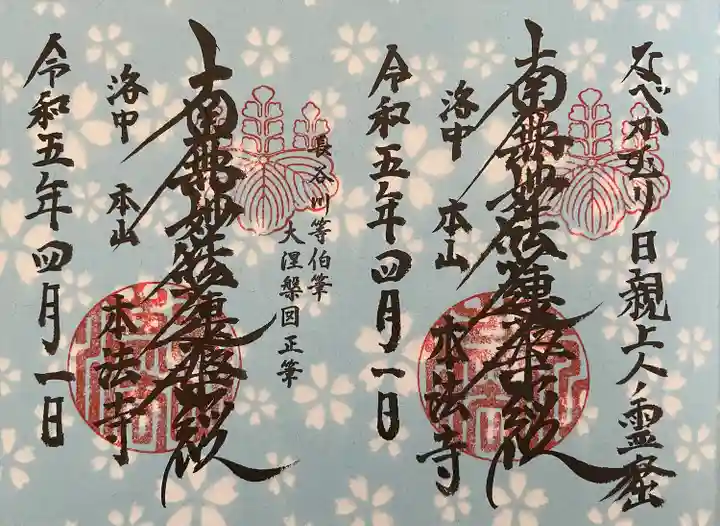 なべかむり日親上人ノ霊蹟
南無妙法蓮華経
洛中 本山 本法寺
令和五年四月一日
長谷川等伯筆
大涅槃図正筆
南無妙法蓮華経
洛中 本山 本法寺
令和五年四月一日